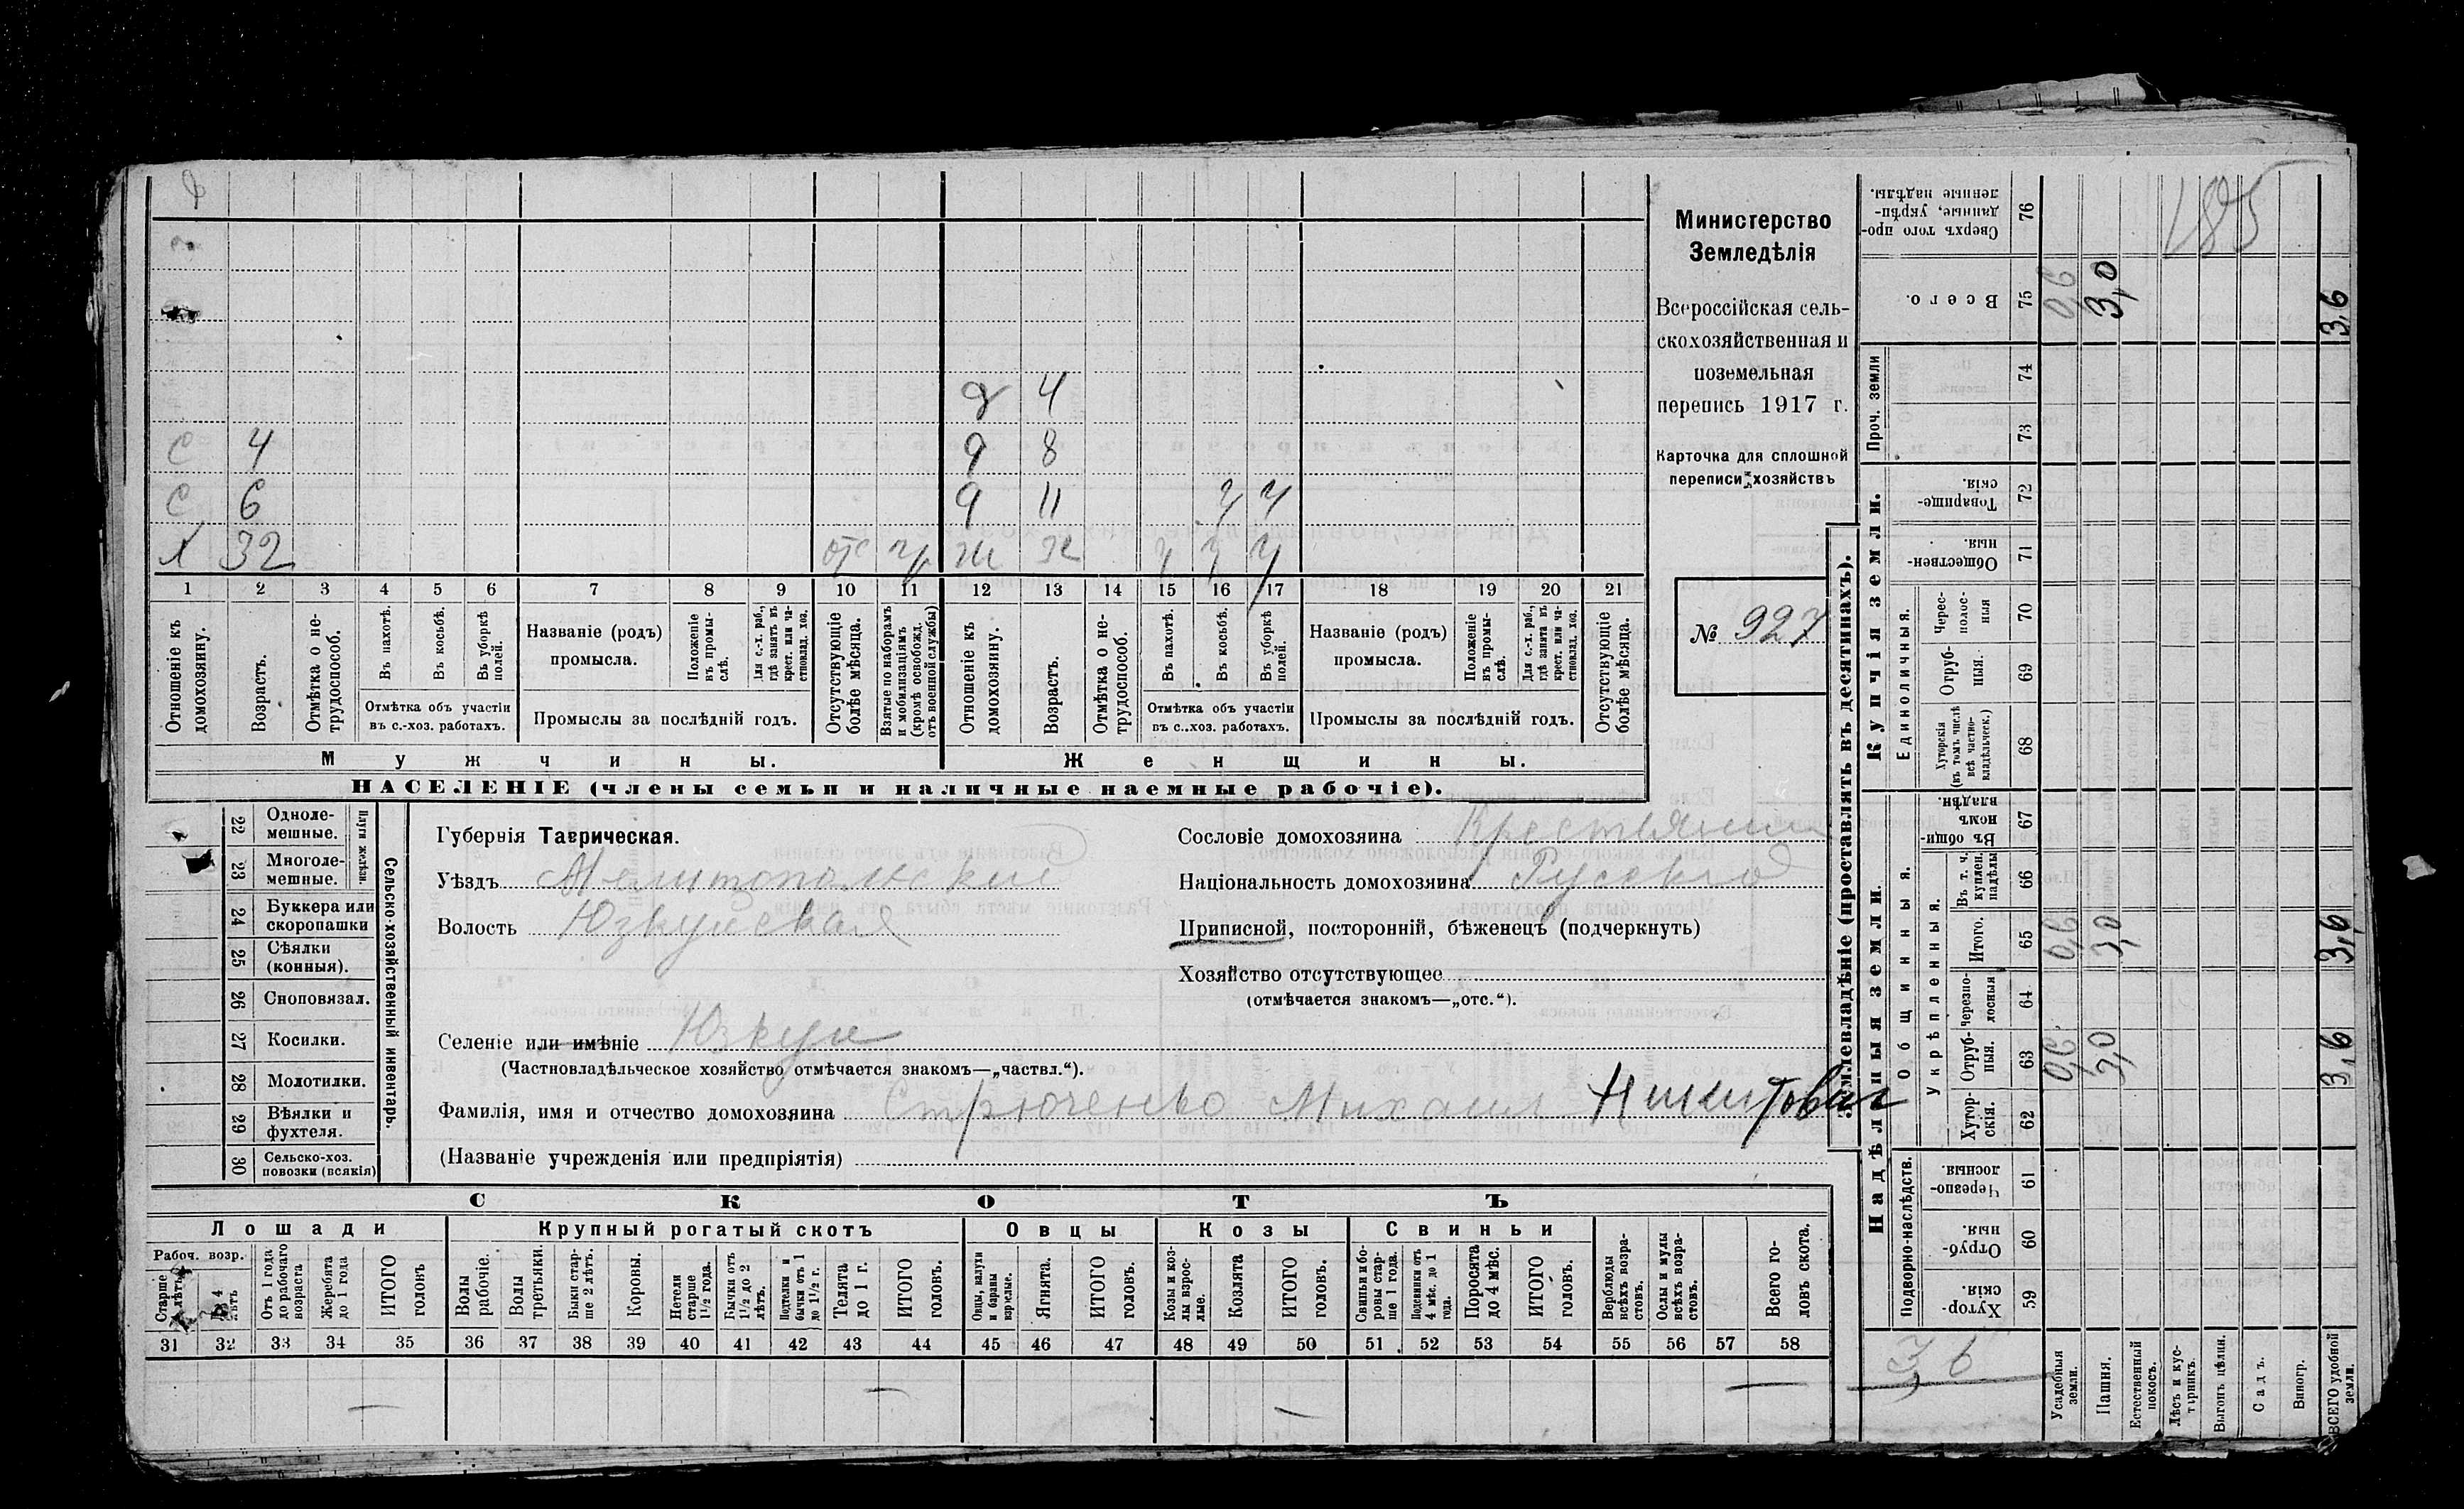 д 4
с 4 д 8
с 6 д 11 ч ч
х 32 отс ч ж 32 ч ч ч
1 2 3 4 5 6 7 8 9 10 11 12 13 14 15 16 17 18 19 20 21
Отношеніе къ домохозяину.
Возрастъ.
Отмѣтка о нетрудоспособ.
Въ пахотѣ.
Въ косьбѣ.
Въ уборкѣ полей.
Отмѣтка объ участіи въ с.-хоз. работахъ.
Названіе (родъ) промысла.
Положеніе въ промыслѣ.
Для с.-х. раб., гдѣ занятъ въ крест. или частновлад. хоз.
Промыслы за послѣдній годъ.
Отсутствующіе болѣе мѣсяца.
Взятые по наборамъ и мобилизаціямъ (кромѣ освобожд. отъ военной службы)
Отношеніе къ домохозяину.
Возрастъ.
Отмѣтка о нетрудоспособ.
Въ пахотѣ.
Въ косьбѣ.
Въ уборкѣ полей.
Отмѣтка объ участіи въ с.-хоз. работахъ.
Названіе (родъ) промысла.
Положеніе въ промыслѣ.
Для с.-х. раб., гдѣ занята въ крест. или частновлад. хоз.
Промыслы за послѣдній годъ.
Отсутствующіе болѣе мѣсяца.
Мужчины. Женщины.
НАСЕЛЕНІЕ (члены семьи и наличные наемные рабочіе).
Министерство
Земледѣлія
Всероссійская сель-
скохозяйственная и
поземельная
перепись 1917 г.
Карточка для сплошной
переписи хозяйствъ
№ 927
22 Одноле-мешные.
23 Многоле-мешные.
Плуги желѣзн.
24 Буккера или скоропашки
25 Сѣялки (конныя).
26 Сноповязал.
27 Косилки.
28 Молотилки.
29 Вѣялки и фухтеля.
30 Сельско-хоз. повозки (всякія)
Сельско-хозяйственный инвентарь.
Губернія Таврическая.
Уѣздъ Мелитопольскій
Волость Юзкуйская
Селеніе или имѣніе Юзкуи
(Частновладѣльческое хозяйство отмѣчается знакомъ—„частвл.“).
Фамилія, имя и отчество домохозяина Стрюченко Михаил Никитович
(Названіе учрежденія или предпріятія)
Сословіе домохозяина Крестьянин
Національность домохозяина Русскій
Приписной, посторонній, бѣженецъ (подчеркнуть)
Хозяйство отсутствующее
(отмѣчается знакомъ—„отс.“).
СКОТЪ
Лошади Крупный рогатый скотъ Овцы Козы Свиньи
Рабоч. возр.
Старше лѣтъ
4 лѣтъ
Отъ 1 года до рабочаго возраста
Жеребята до 1 года
ИТОГО головъ
Волы рабочіе.
Волы третьяки.
Быки старше 2 лѣтъ.
Коровы.
Нетели старше 1½ года.
Бычки отъ 1½ до 2 лѣтъ.
Подтелки и бычки отъ 1 до 1½ г.
Телята до 1 г.
ИТОГО головъ.
Овцы, валухи и бараны взрослые.
Ягнята.
ИТОГО головъ.
Козы и козлы взрослые.
Козлята
ИТОГО головъ.
Свиньи и боровы старше 1 года.
Подсвинки отъ 4 мѣс. до 1 года.
Поросята до 4 мѣс.
ИТОГО головъ.
Верблюды всѣхъ возрастовъ.
Ослы и мулы всѣхъ возрастовъ.
Всего головъ скота.
31 32 33 34 35 36 37 38 39 40 41 42 43 44 45 46 47 48 49 50 51 52 53 54 55 56 57 58
— — — —
Землевладѣніе (проставлять въ десятинахъ).
Надѣльныя земли. Купчія земли. Проч. земли
Подворно-наслѣдств.
Общинныя.
Укрѣпленныя.
Единоличныя.
Хуторскія. 59
Отрубныя. 60
Черезполосныя. 61
Хуторскія. 62
Отрубныя. 63 0,6 3,0 3,6
Черезполосныя 64
Итого. 65 0,6 3,0 3,6
Въ т. ч. куплен. надѣлы 66
Въ общинномъ владѣн. 67
Хуторскія (въ томъ числѣ всѣ частновладѣльческ.) 68
Отрубныя. 69
Чересполосныя 70
Общественныя. 71
Товарищескія. 72
73
74
Всего. 75 0,6 3,0 3,6
Сверхъ того проданные, укрѣпленные надѣлы. 76
185
3,6
Усадебныя земли.
Пашня.
Естественный покосъ.
Лѣсъ и кустарникъ.
Выгонъ цѣлин.
Садъ.
Виногр.
ВСЕГО удобной земли.